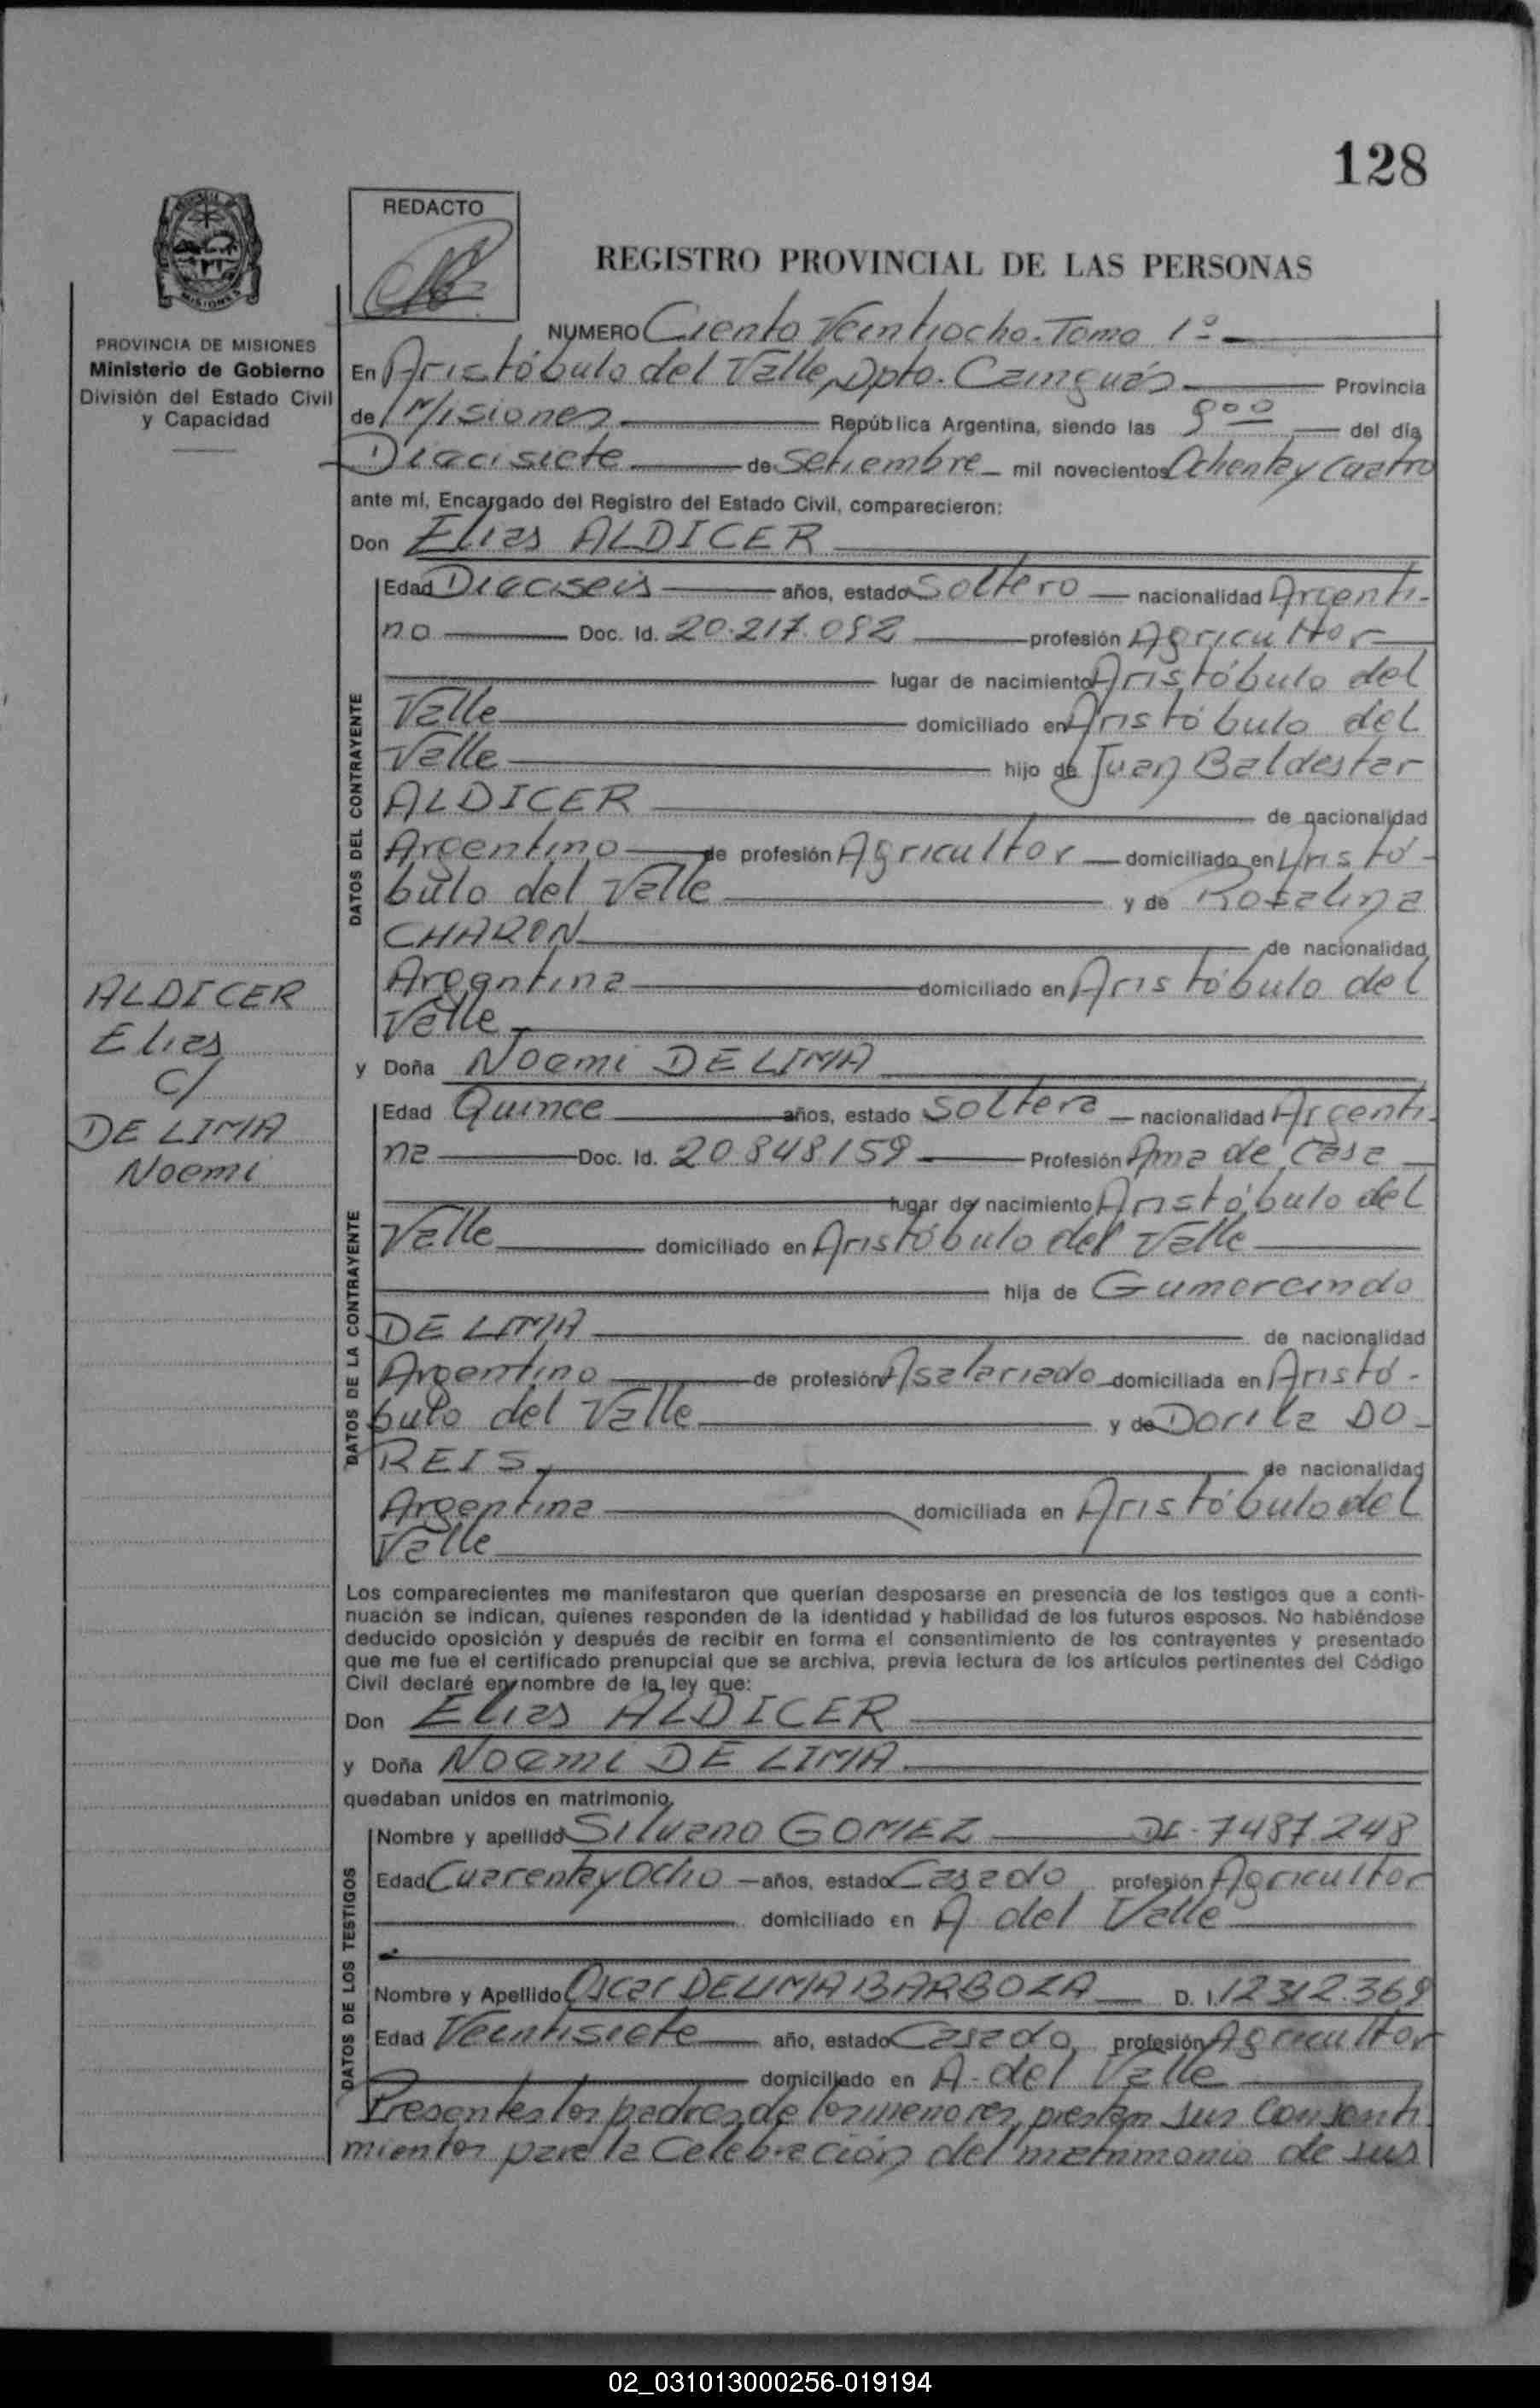 128
REDACTO
REGISTRO PROVINCIAL DE LAS PERSONAS
PROVINCIA DE MISIONES
Ministerio de Gobierno
División del Estado Civil
y Capacidad
NUMERO Ciento Veintiocho. Tomo 1º
En Aristóbulo del Valle, Dpto. Cainguás Provincia
de Misiones República Argentina, siendo las 9⁰⁰ del día
Diecisiete de Setiembre mil novecientos Ochenta y Cuatro
ante mí, Encargado del Registro del Estado Civil, comparecieron:
Don Elias ALDICER
DATOS DEL CONTRAYENTE
Edad Dieciseis años, estado Soltero nacionalidad Argenti-
no Doc. Id. 20.217.092 profesión Agricultor
lugar de nacimiento Aristóbulo del
Valle domiciliado en Aristóbulo del
Valle hijo de Juan Baldester
ALDICER de nacionalidad
Argentino de profesión Agricultor domiciliado en Aristó-
bulo del Valle y de Rosalina
CHARON de nacionalidad
Argentina domiciliado en Aristóbulo del
Valle
ALDICER
Elias
c/
DE LIMA
Noemi
y Doña Noemi DE LIMA
DATOS DE LA CONTRAYENTE
Edad Quince años, estado Soltera nacionalidad Argenti-
na Doc. Id. 20.848.159 Profesión Ama de Casa
lugar de nacimiento Aristóbulo del
Valle domiciliado en Aristóbulo del Valle
hija de Gumercindo
DE LIMA de nacionalidad
Argentino de profesión Asalariado domiciliada en Aristó-
bulo del Valle y de Dorila DO-
REIS, de nacionalidad
Argentina domiciliada en Aristóbulo del
Valle
Los comparecientes me manifestaron que querían desposarse en presencia de los testigos que a conti-
nuación se indican, quienes responden de la identidad y habilidad de los futuros esposos. No habiéndose
deducido oposición y después de recibir en forma el consentimiento de los contrayentes y presentado
que me fue el certificado prenupcial que se archiva, previa lectura de los artículos pertinentes del Código
Civil declaré en nombre de la ley que:
Don Elias ALDICER
y Doña Noemi DE LIMA
quedaban unidos en matrimonio.
DATOS DE LOS TESTIGOS
Nombre y apellido Silvano GOMEZ DI- 7487.248
Edad Cuarenta y Ocho años, estado Casado profesión Agricultor
domiciliado en A. del Valle
Nombre y Apellido Oscar DELIMA BARBOZA D. I. 12312.369
Edad Veintisiete año, estado Casado profesión Agricultor
domiciliado en A. del Valle
Presentes los padres de los menores, prestan sus consenti-
mientos para la Celebración del matrimonio de sus
02_031013000256-019194